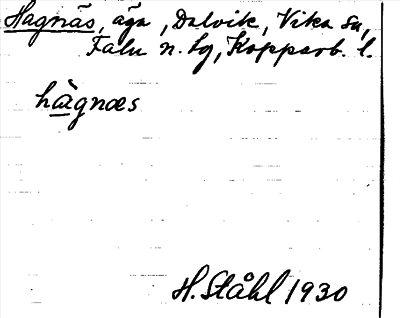 Hagnäs, äga, Dalvik, Vika sn,
Falu n. tg, Kopparb. l.
hàgnæs
H. Ståhl 1930